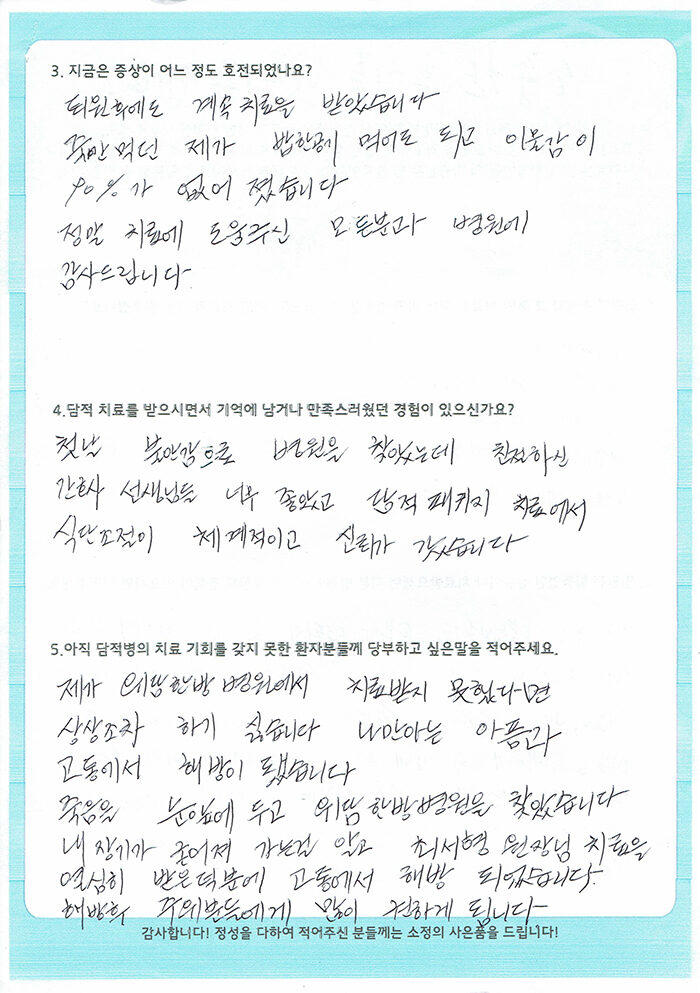 3. 지금은 증상이 어느 정도 호전되었나요?
퇴원후에도 계속 치료을 받았습니다
죽만 먹던 제가 밥한공기 먹어도 되고 이물감이
90%가 없어 졌습니다
정말 치료에 도움주신 모든분과 병원에
감사드립니다
4.담적 치료를 받으시면서 기억에 남거나 만족스러웠던 경험이 있으신가요?
첫날 불안감으로 병원을 찾았는데 친절하신
간호사 선생님들 너무 좋았고 담적 패키지 치료에서
식단조절이 체계적이고 신뢰가 갔습니다
5.아직 담적병의 치료 기회를 갖지 못한 환자분들께 당부하고 싶은말을 적어주세요.
제가 위담한방병원에서 치료받지 못했다면
상상조차 하기 싫습니다 나만아는 아픔과
고통에서 해방이 됐습니다
죽음을 눈앞에 두고 위담한방병원을 찾았습니다
내 장기가 굳어져 가는걸 알고 최서형 원장님 치료을
열심히 받은덕분에 고통에서 해방 되었습니다.
해방희 주위분들에게 많이 권하게 됩니다
감사합니다! 정성을 다하여 적어주신 분들께는 소정의 사은품을 드립니다!